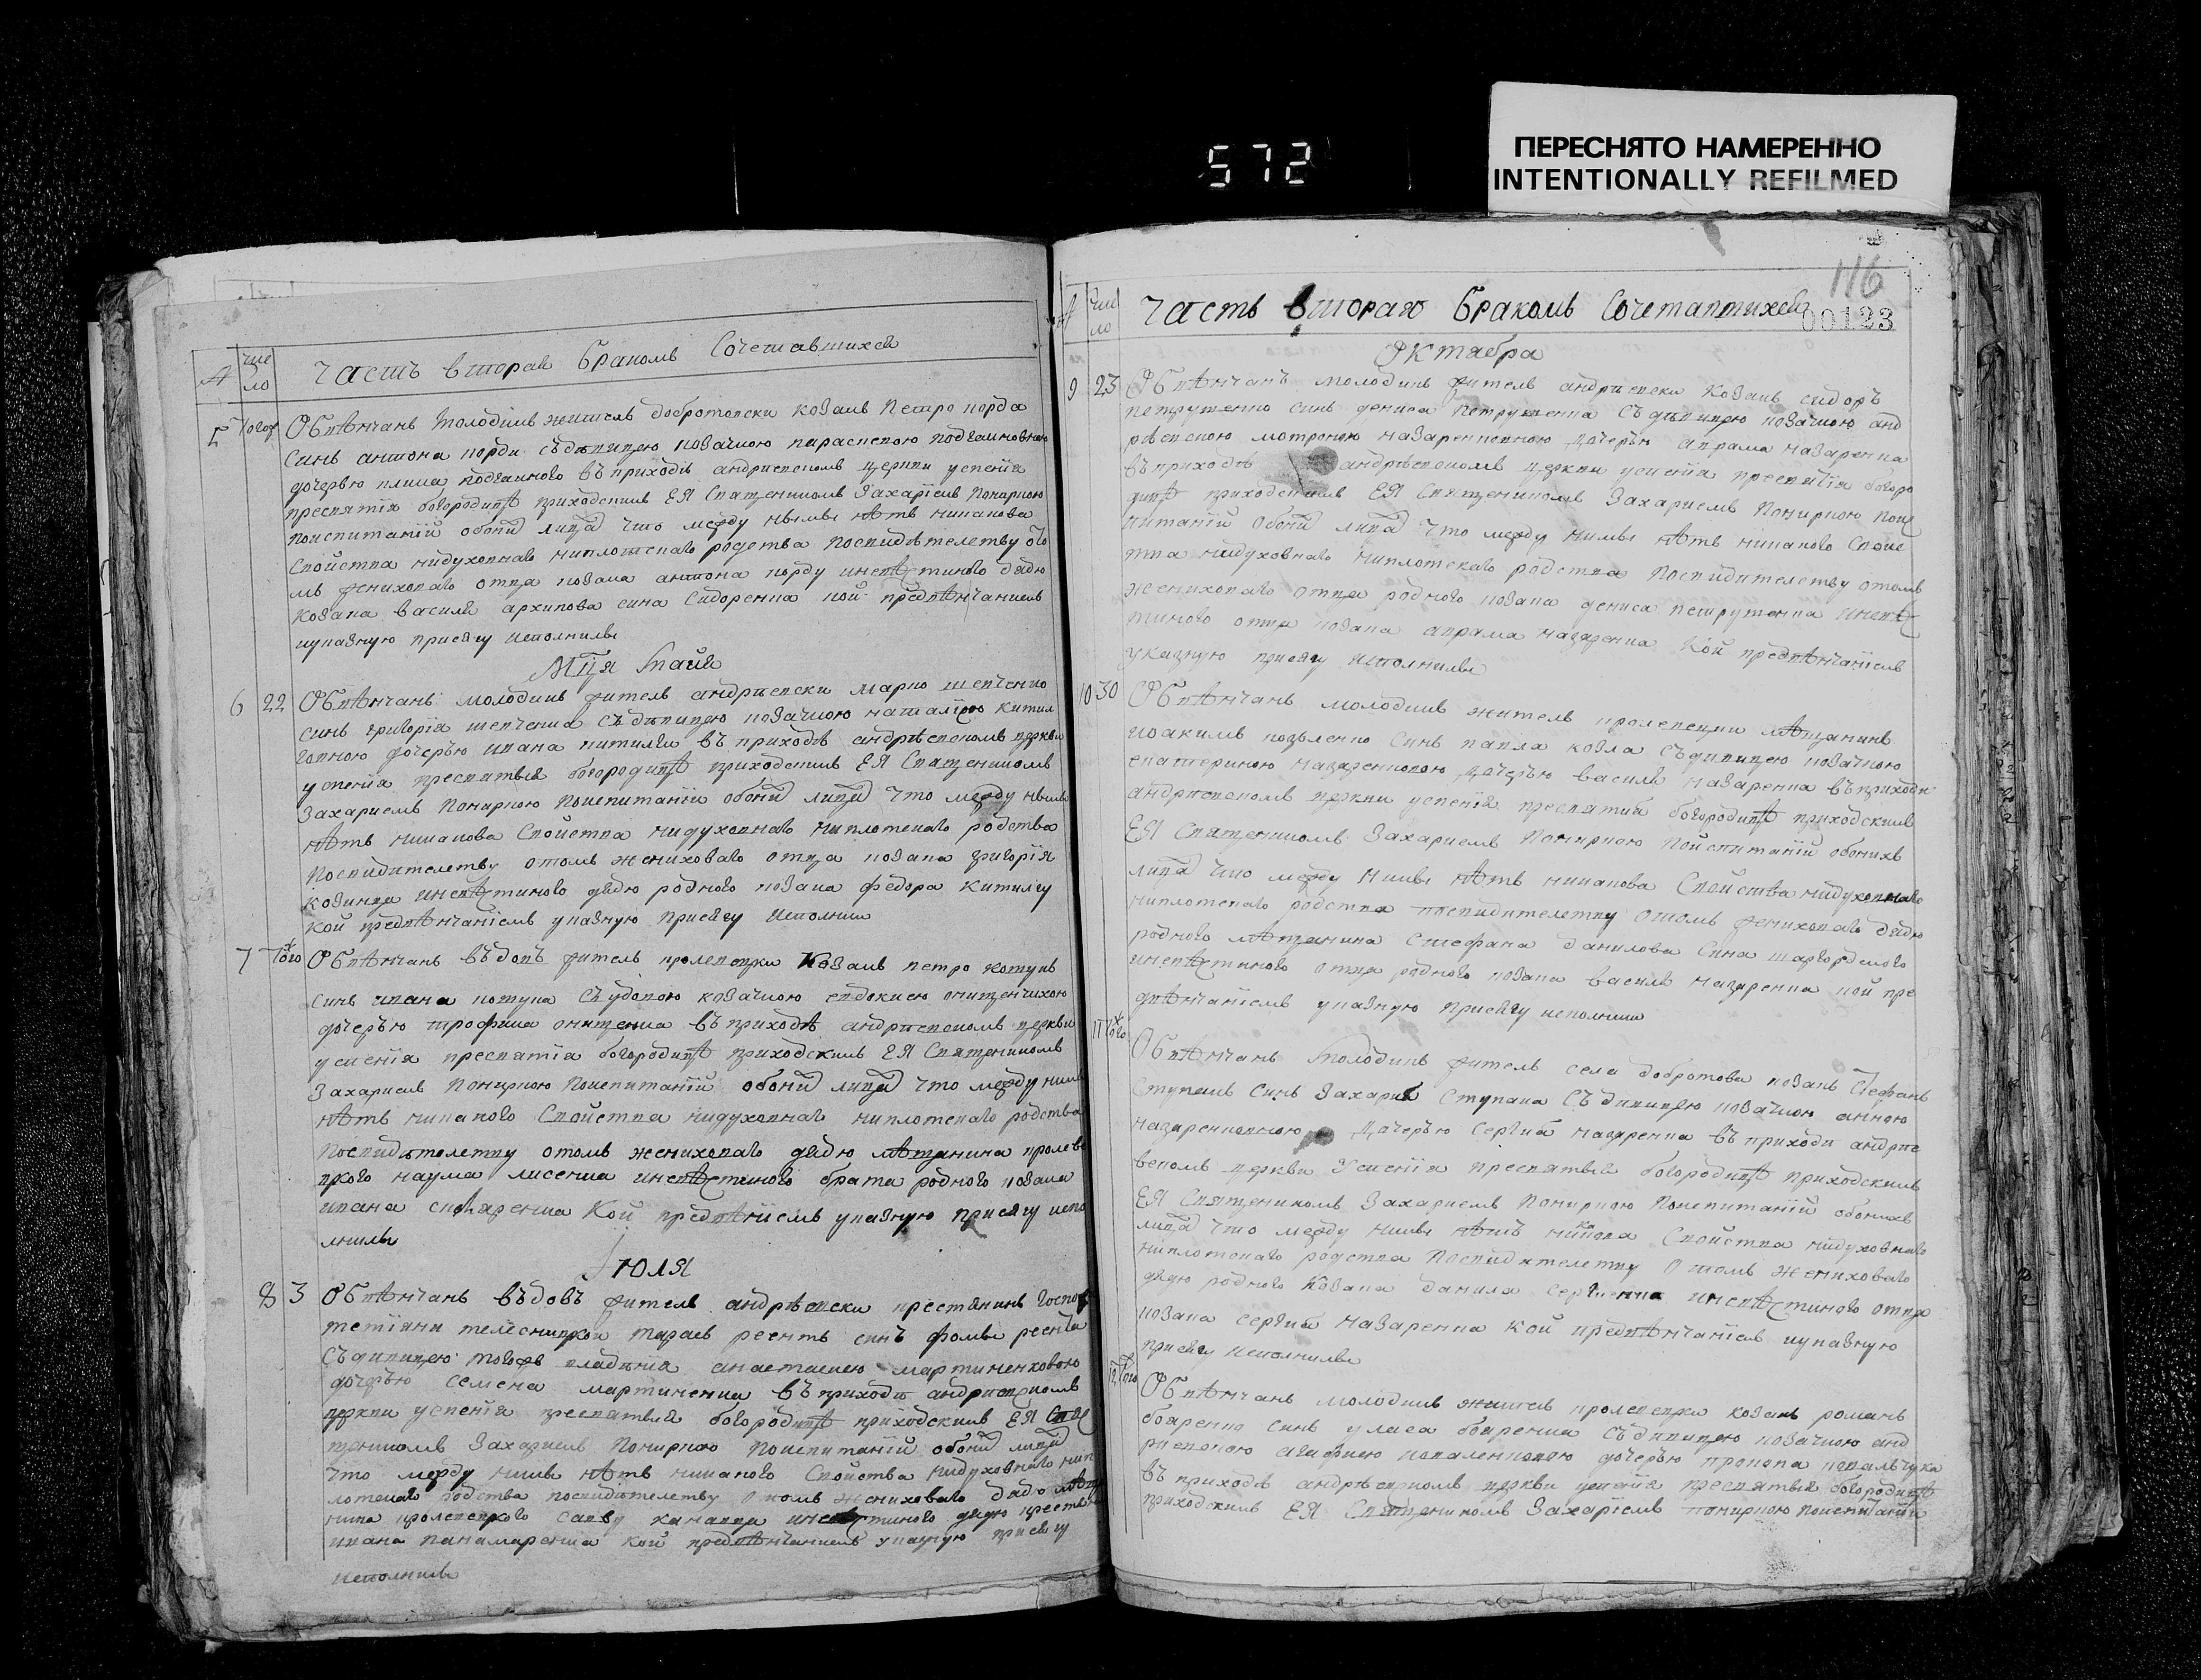 572
ПЕРЕСНЯТО НАМЕРЕННО
INTENTIONALLY REFILMED
Число
Часть вторая бракомъ Сочетавшихся
5 Тогож
Обвѣнчанъ молодикъ житель добротовски козакъ Петро корда
синъ антона корди съ дѣвицею козачкою параскевою
дочерью в приходѣ андрѣевскомъ церкви успенїя
пресвятїя богородицѣ приходскимъ ЕЯ Священникомъ Захарїемъ Пониркою
поиспитанїй обоих лицъ что между нымы нѣтъ никакова
Свойства нидуховнаго ниплотскаго родства посвидѣтелству ото
мъ жениховаго отца козака антона корду иневѣстиного дядю
козака василя архипова сина Сидоренка кой предвѣнчанием
иуказную присягу исполнилы
Мця Майя
6 22 Обвѣнчанъ молодикъ житель андрѣевски марко шевченко
синъ григорїя шевченка съ дѣвицею козачкою наталїею китил
говною дочерью ивана китилги въ приходѣ андрѣевскомъ церкви
успенїя пресвятыя богородицѣ приходскимъ ЕЯ Священникомъ
Захариемъ Пониркою поиспитанїи обоих лицъ что между нымы
нѣтъ никакова Свойства нидуховнаго ниплотскаго родства
посвидителству отомъ жениховаго отца козака григорїя
иневѣстиного дядю родного козака федора китилгу
кой предвѣнчанїемъ указную присягу исполнили
7 Тогож Обвѣнчанъ вѣдовъ житель кролевецки Козакъ петро котунъ
синъ ивана котуна съ удовою козачкою евдокиею онищенчихою
дочерью трофима онищенка въ приходѣ андрѣевскомъ церкви
успенїя пресвятїя богородицѣ приходскимъ ЕЯ Священникомъ
Захариемъ Пониркою поиспитанїй обоих лицъ что между нимы
нѣтъ никакого Свойства нидуховнаго ниплотскаго родства
посвидѣтелству отомъ жениховаго дядю мѣщанина кролеве
цкого наума лисенка иневѣстиного брата родного козака
ивана Кой предвѣнчїемъ указную присягу испо
лнилы
Июля
8 3 Обвѣнчанъ вѣдовъ житель андрѣевски крестянинъ госпож
тетїяни тарасъ реентъ синъ фомы реента
съ дивицею тогожъ владѣнїя анастасиею мартиненковою
дочерью семена мартиненка въ приходѣ андрѣевскомъ
церкви успенїя пресвятыя богородицѣ приходскимъ ЕЯ Свя
щенникомъ Захариемъ Пониркою поиспитанїй обоих лицъ
что между нимы нѣтъ никакого Свойства нидуховнаго нип
лотскаго родства посвидѣтелству отомъ жениховаго дядю мѣща
нина кролевецкого савву иневѣстиного дядю крестян
ивана панамаренка кой предвѣнчаниемъ указную присягу
исполнилы
116
00123
Число
Часть вторая бракомъ Сочетавшихся
Октября
9 23 Обвѣнчанъ молодикъ житель андрѣевски козакъ сидоръ
петрушенко синъ дениса Петрушенка съ дѣвицею козачкою анд
рѣевскою мотроною назаренковною дочерью аврама назаренка
въ приходѣ андрѣевскомъ церкви успенїя пресвятїя богоро
дицѣ приходскимъ ЕЯ Священникомъ Захариемъ Пониркою поис
питанїй обоих лицъ что между нимы нѣтъ никакого Свойс
тва нидуховнаго ниплотскаго родства посвидителству отомъ
жениховаго отца родного козака дениса петрушенка иневѣс
тиного отца козака аврама назаренка кой предвѣнчанїемъ
указную присягу исполнилы
10 30 Обвѣнчанъ молодикъ житель кролевецки мѣщанинъ
иоакимъ козленко синъ павла козла съ дивицею козачкою
екатериною назаренковою дочерью василя назаренка въ приходи
андрѣевскомъ церкви успенїя пресвятия богородицѣ приходскимъ
ЕЯ Священникомъ Захариемъ Пониркою поиспитанїй обоихъ
лицъ что между нимы нѣтъ никакова Свойства нидуховнаго
ниплотскаго родства посвидителству отомъ жениховаго дядю
родного мѣщанина стефана данилова сина
иневѣстиного отца родного козака василя назаренка кой пре
двѣнчанїемъ указную присягу исполнили
11 Тогож
Обвѣнчанъ молодикъ житель села добротова козакъ Стефанъ
Ступакъ синъ Захария Ступака съ дивицею козачкою анною
назаренковною дочерью Сергия назаренка въ приходи андрѣе
вскомъ церкви Успенїя пресвятыя богородицѣ приходскимъ
ЕЯ Священникомъ Захариемъ Пониркою поиспитанїй обоихъ
лицъ что между нимы нѣтъ никакова Свойства нидуховнаго
ниплотскаго родства посвидителству отомъ жениховаго
дядю родного козака данила Сергиенка иневѣстиного отца
козака сергия назаренка кой предвѣнчанїемъ иуказную
присягу исполнилы
12 Тогож
Обвѣнчанъ молодикъ житель кролевецки козакъ романъ
бояренко синъ уласа бояренка съ дивицею козачкою анд
риевскою агафиею коваленковою дочерью прокопа ковальчука
въ приходѣ андрѣевскомъ церкви успенїя пресвятыя богородицѣ
приходскимъ ЕЯ Священникомъ Захарїемъ пониркою поиспитанїи